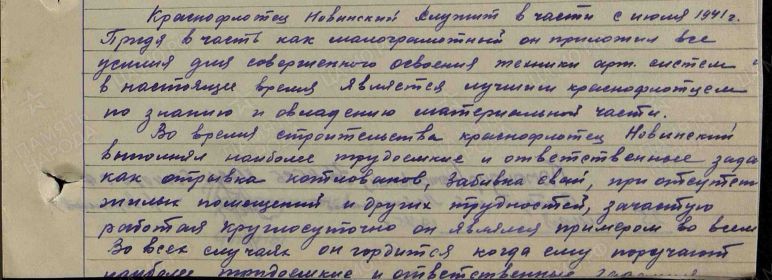 Краснофлотец Новинский служит в части с июля 1941 г.
Придя в часть как малограмотный он приложил все
усилия для совершенного освоения техники арт. систем
в настоящее время является лучшим краснофлотцем
по знанию и овладению материальной части.
Во время строительства краснофлотец Новинский
выполнял наиболее трудоемкие и ответственные зада
как отрывка котлованов, забивка свай, при отсутст
жилых помещений и других трудностей, зачастую
работая круглосуточно он являлся примером во всем
Во всех случаях он гордится когда ему поручают
наиболее трудоемкие и ответственные задания